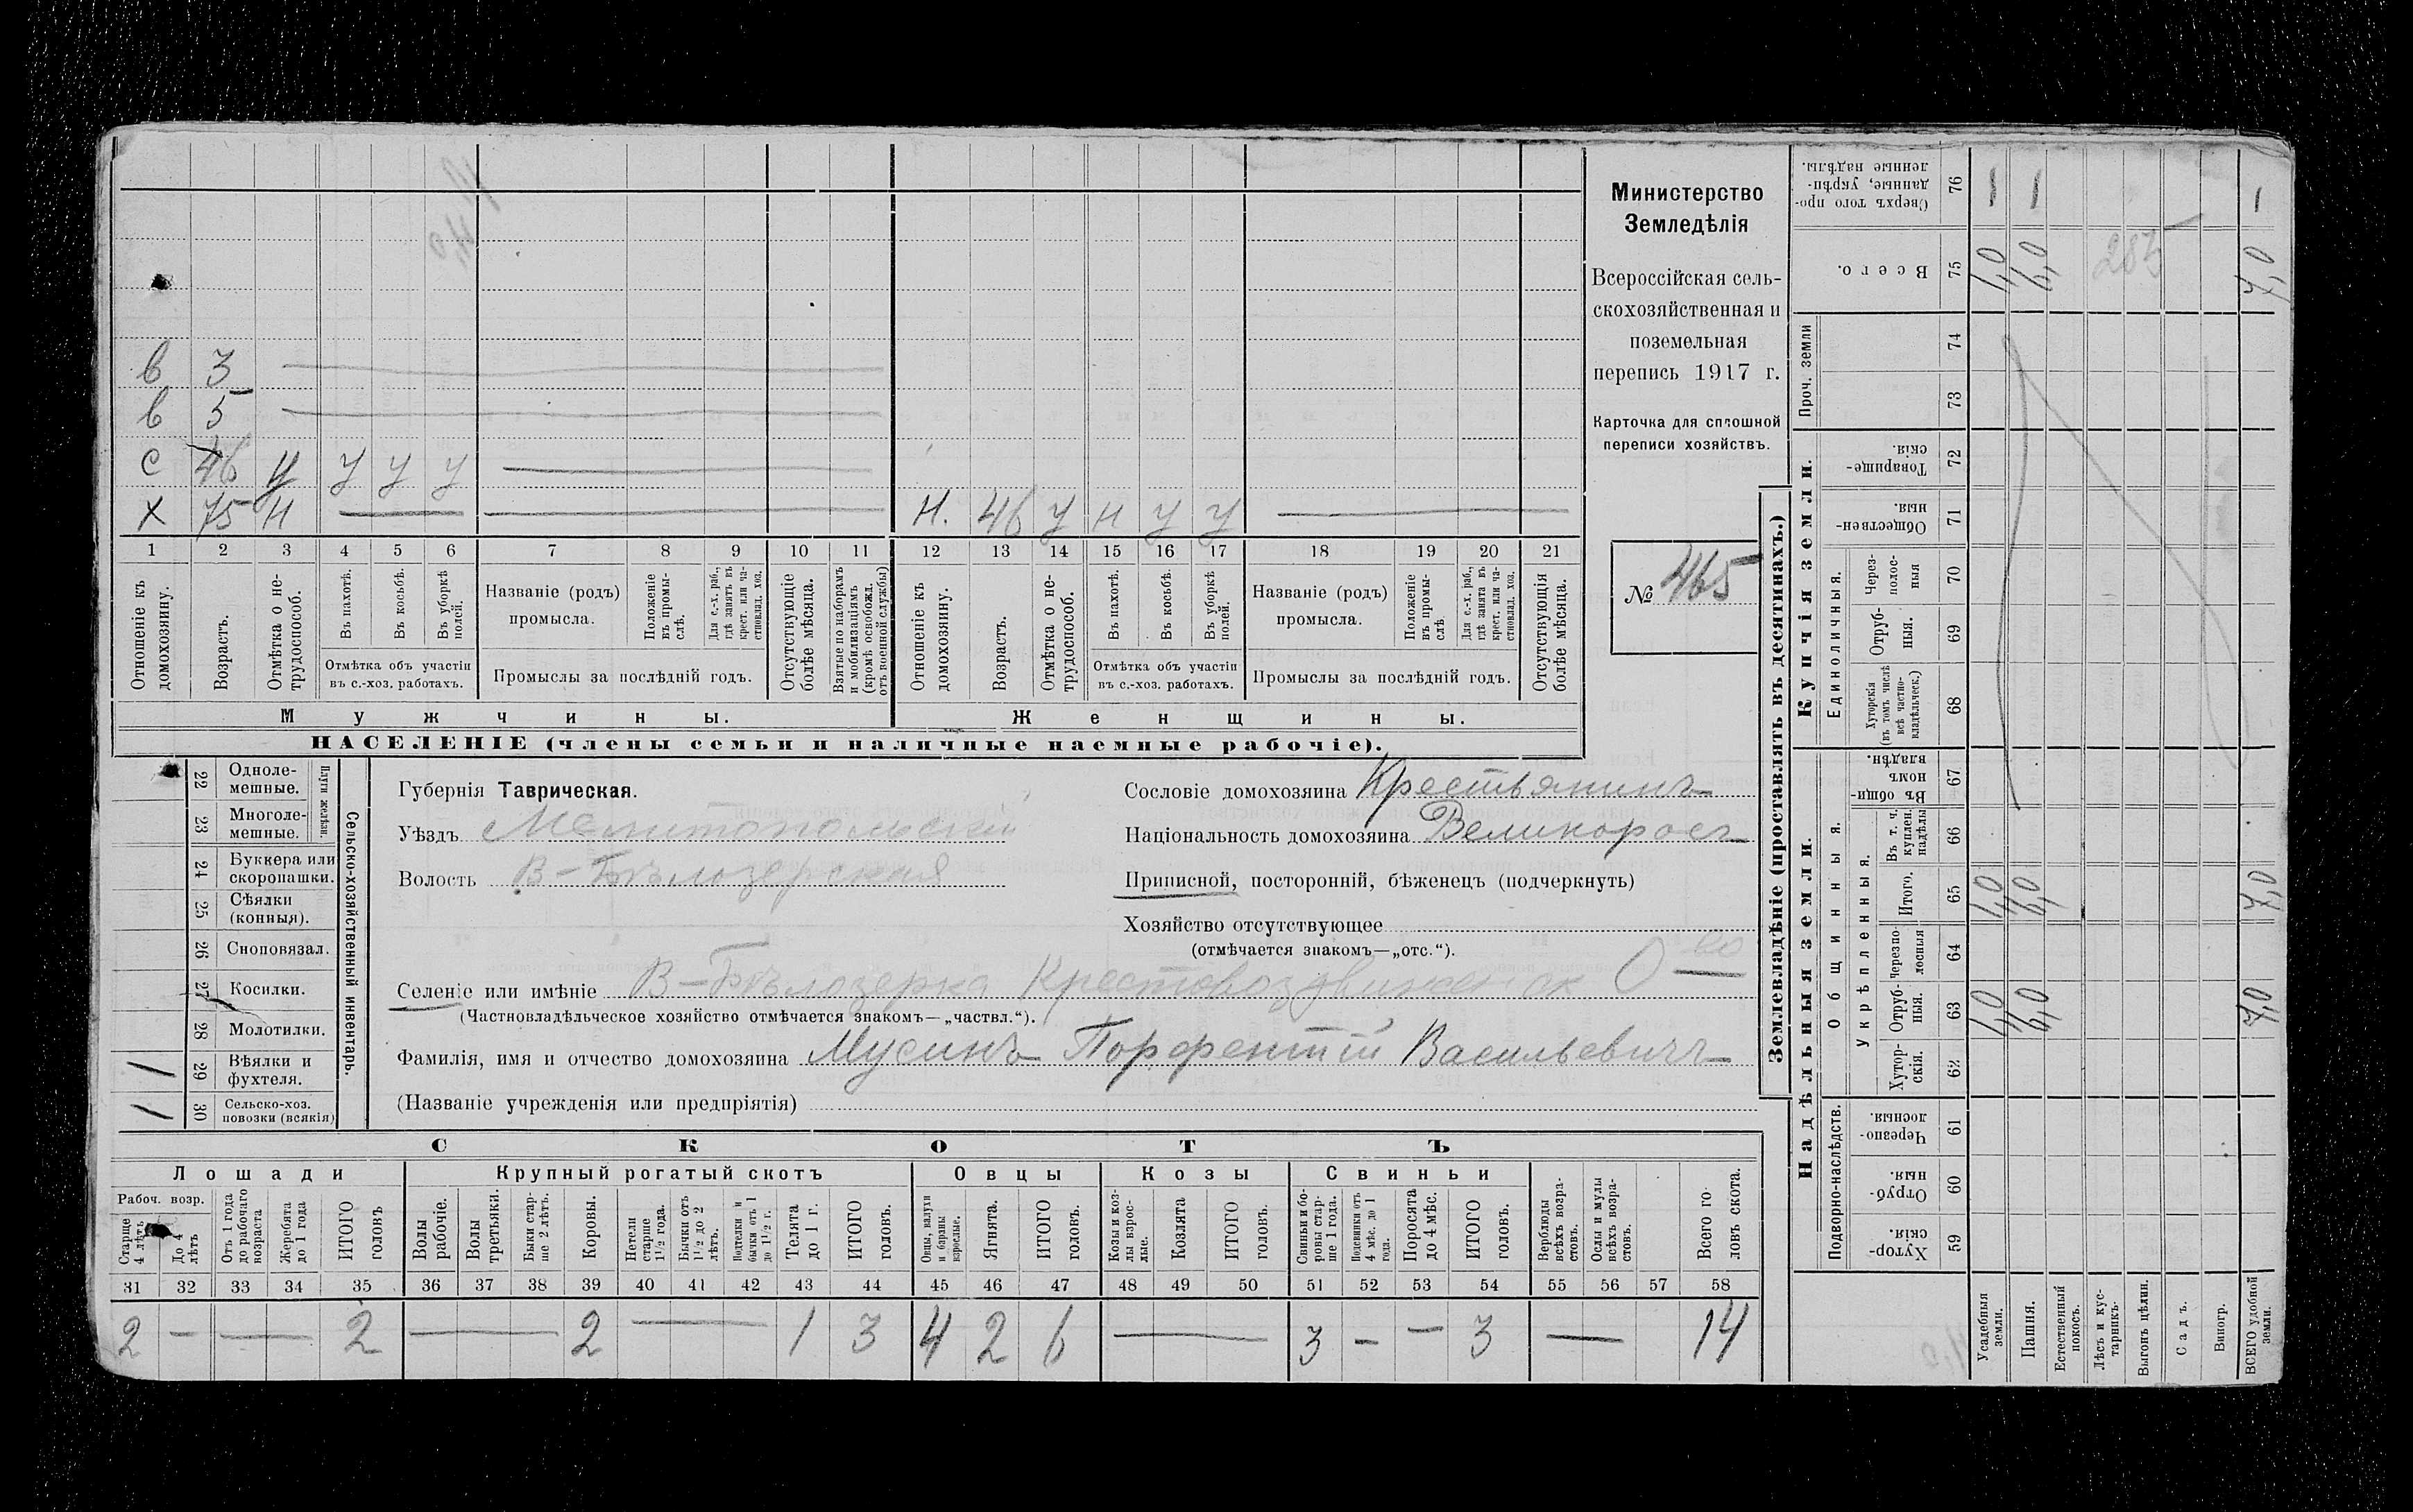 Министерство
Земледѣлія
Всероссійская сель-
скохозяйственная и
поземельная
перепись 1917 г.
Карточка для сплошной
переписи хозяйствъ.
№ 465
в 3
в 5
с 46 у у у у
х 75 н
н. 46 у н у у
1 2 3 4 5 6 7 8 9 10 11 12 13 14 15 16 17 18 19 20 21
Отношеніе къ домохозяину.
Возрастъ.
Отмѣтка о не-трудоспособ.
Въ пахотѣ.
Въ косьбѣ.
Въ уборкѣ полей.
Отмѣтка объ участіи
въ с.-хоз. работахъ.
Названіе (родъ)
промысла.
Положеніе въ промы-слѣ.
Для с.-х. раб., гдѣ занятъ въ крест. или ча-стновлад. хоз.
Промыслы за послѣдній годъ.
Отсутствующіе болѣе мѣсяца.
Взятые по наборамъ и мобилизаціямъ (кромѣ освобожд. отъ военной службы)
Отношеніе къ домохозяину.
Возрастъ.
Отмѣтка о не-трудоспособ.
Въ пахотѣ.
Въ косьбѣ.
Въ уборкѣ полей.
Отмѣтка объ участіи
въ с.-хоз. работахъ.
Названіе (родъ)
промысла.
Положеніе въ промы-слѣ.
Для с.-х. раб., гдѣ занята въ крест. или ча-стновлад. хоз.
Промыслы за послѣдній годъ.
Отсутствующія болѣе мѣсяца.
Мужчины.
Женщины.
НАСЕЛЕНІЕ (члены семьи и наличные наемные рабочіе).
Сельско-хозяйственный инвентарь.
Плуги желѣзн.
22 Одноле-мешные.
23 Многоле-мешные.
24 Буккера или скоропашки.
25 Сѣялки (конныя).
26 Сноповязал.
27 Косилки.
28 Молотилки.
1 29 Вѣялки и фухтеля.
1 30 Сельско-хоз. повозки (всякія)
Губернія Таврическая.
Уѣздъ Мелитопольскій
Волость В-Бѣлозерская
Сословіе домохозяина Крестьянинъ
Національность домохозяина Великоросъ
Приписной, посторонній, бѣженецъ (подчеркнуть)
Хозяйство отсутствующее
(отмѣчается знакомъ—„отс.“).
Селеніе или имѣніе В-Бѣлозерка Крестовоздвиженск О-во
(Частновладѣльческое хозяйство отмѣчается знакомъ—„частвл.“).
Фамилія, имя и отчество домохозяина Мусинъ Порфентій Васильевичъ
(Названіе учрежденія или предпріятія)
СКОТЪ
Лошади
Крупный рогатый скотъ
Овцы
Козы
Свиньи
Рабоч. возр.
Старше 4 лѣтъ
До 4 лѣтъ
Отъ 1 года до рабочаго возраста
Жеребята до 1 года
ИТОГО головъ
Волы рабочіе.
Волы третьяки.
Быки стар-ше 2 лѣтъ.
Коровы.
Нетели старше 1½ года.
Бычки отъ 1½ до 2 лѣтъ.
Подтелки и бычки отъ 1 до 1½ г.
Телята до 1 г.
ИТОГО головъ.
Овцы, валухи и бараны взрослые.
Ягнята.
ИТОГО головъ.
Козы и коз-лы взрос-лые.
Козлята
ИТОГО головъ.
Свиньи и бо-ровы стар-ше 1 года.
Подсвинки отъ 4 мѣс. до 1 года.
Поросята до 4 мѣс.
ИТОГО головъ.
Верблюды всѣхъ возра-стовъ.
Ослы и мулы всѣхъ возра-стовъ.
Всего го-ловъ скота.
31 32 33 34 35 36 37 38 39 40 41 42 43 44 45 46 47 48 49 50 51 52 53 54 55 56 57 58
2 — — 2 — 2 — 1 3 4 2 6 — 3 — — 3 — 14
Землевладѣніе (проставлять въ десятинахъ.)
Надѣльныя земли.
Купчія земли.
Подворно-наслѣдств.
Общинныя.
Укрѣпленныя.
Единоличныя.
Проч. земли
59 Хутор-скія.
60 Отруб-ныя.
61 Черезпо-лосныя.
62 Хутор-скія.
63 Отруб-ныя. 1,0 6,0 7,0
64 Черезпо-лосныя
65 Итого. 1,0 6,0 7,0
66 Въ т. ч. куплен. надѣлы
67 Въ общин-номъ владѣн.
68 Хуторскія (въ томъ числѣ всѣ частно-владѣльческ.)
69 Отруб-ныя.
70 Через-полос-ныя
71 Обществен-ныя.
72 Товарище-скія.
73
74
75 Всего. 1,0 6,0 7,0
285
76 Сверхъ того про-данные, укрѣп-ленные надѣлы. 1 1 1
Усадебныя земли.
Пашня.
Естественный покосъ.
Лѣсъ и кус-тарникъ.
Выгонъ цѣлин.
Садъ.
Виногр.
ВСЕГО удобной земли.